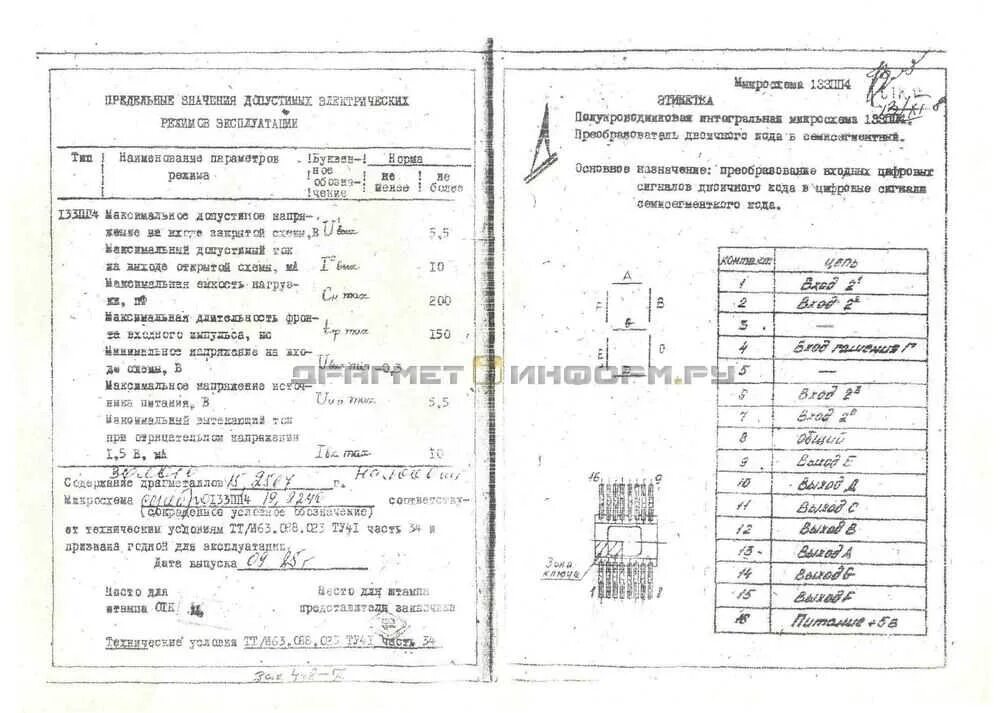 ПРЕДЕЛЬНЫЕ ЗНАЧЕНИЯ ДОПУСТИМЫХ ЭЛЕКТРИЧЕСКИХ
РЕЖИМОВ ЭКСПЛУАТАЦИИ
Тип ! Наименование параметров режима ! Буквенное обозначение ! Норма
не менее ! не более
133ПП4 Максимальное допустимое напря-
жение на входе закрытой схемы, В 5,5
Максимальный допустимый ток
на выходе открытой схемы, мА 10
Максимальная емкость нагруз-
ки, пФ Сн max 200
Максимальная длительность фрон-
та входного импульса, нс 150
Минимальное напряжение на вхо-
де схемы, В -0,3
Максимальное напряжение источ-
ника питания, В 5,5
Максимальный вытекающий ток
при отрицательном напряжении
1,5 В, мА 10
Содержание драгметаллов г.
Микросхема 133ПП4 соответству-
(сокращенное условное обозначение)
ет техническим условиям ТТ/И63.088.023 ТУ41 часть 34 и
признана годной для эксплуатации.
Дата выпуска 09 85г
Место для
штампа ОТК
Место для штампа
представителя заказчика
Технические условия ТТ/И63.088.023 ТУ41 часть 34
Микросхема 133ПП4
ЭТИКЕТКА
Полупроводниковая интегральная микросхема 133ПП4.
Преобразователь двоичного кода в семисегментный.
Основное назначение: преобразование входных цифровых
сигналов двоичного кода в цифровые сигналы
семисегментного кода.
A
F B
G
E
D
16 9
Зона
ключа
1 8
контакт Цепь
1 Вход 2¹
2 Вход 2²
3 —
4 Вход гашения Г
5 —
6 Вход 2³
7 Вход 2⁰
8 Общий
9 Выход E
10 Выход Д
11 Выход C
12 Выход B
13 Выход A
14 Выход G
15 Выход F
16 Питание +5В
ДРАГМЕТ ИНФОРМ.РУ